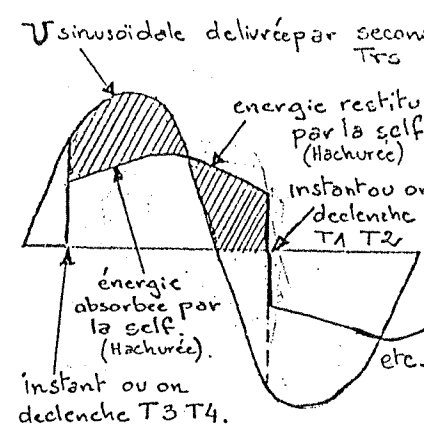 U sinusoïdale delivrée par secon
Trs
energie restitu
par la self
(Hachurée)
instant ou on
declenche
T1 T2
énergie
absorbee par
la self.
(Hachurée).
etc.
instant ou on
declenche T3 T4.